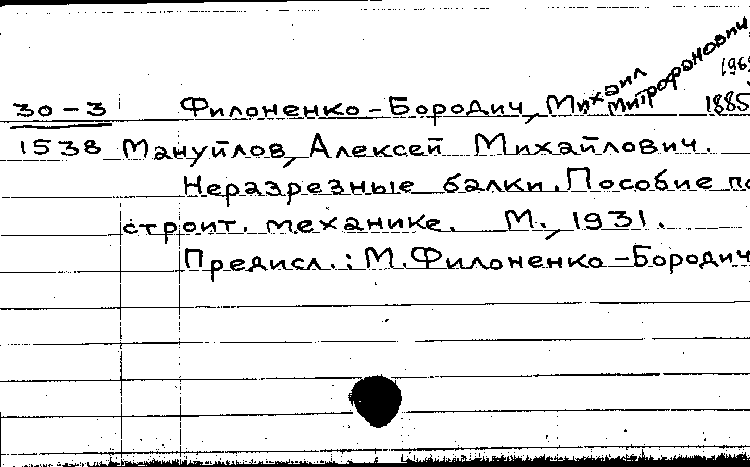 30-3 Филоненко-Бородич, Михаил Митрофанович, 1885
1538 Мануйлов, Алексей Михайлович.
Неразрезные балки. Пособие по
строит. механике. М., 1931.
Предисл.: М. Филоненко-Бородич